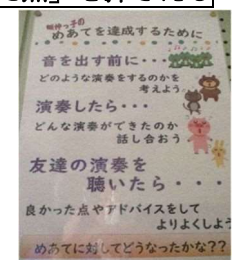 めあてを達成するために
音を出す前に・・・
どのような演奏をするのかを
考えよう
演奏したら・・・
どんな演奏ができたのか
話し合おう
友達の演奏を
聴いたら・・・
良かった点やアドバイスをして
よりよくしよう
めあてに対してどうなったかな??